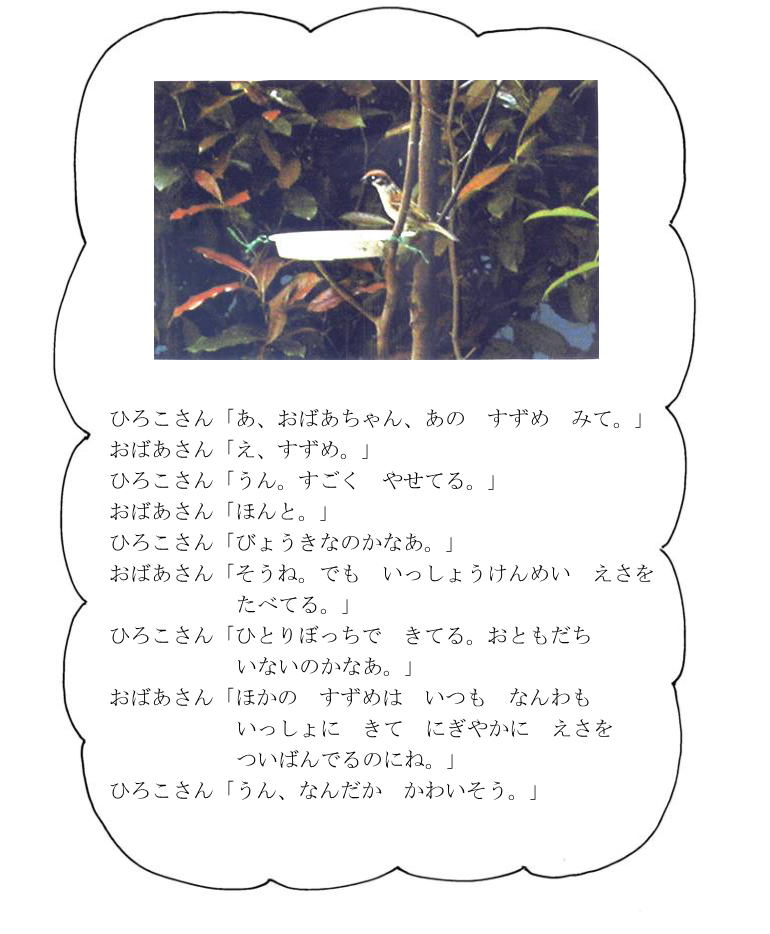 ひろこさん「あ、おばあちゃん、あの　すずめ　みて。」
おばあさん「え、すずめ。」
ひろこさん「うん。すごく　やせてる。」
おばあさん「ほんと。」
ひろこさん「びょうきなのかなあ。」
おばあさん「そうね。でも　いっしょうけんめい　えさを
たべてる。」
ひろこさん「ひとりぼっちで　きてる。おともだち
いないのかなあ。」
おばあさん「ほかの　すずめは　いつも　なんわも
いっしょに　きて　にぎやかに　えさを
ついばんでるのにね。」
ひろこさん「うん、なんだか　かわいそう。」